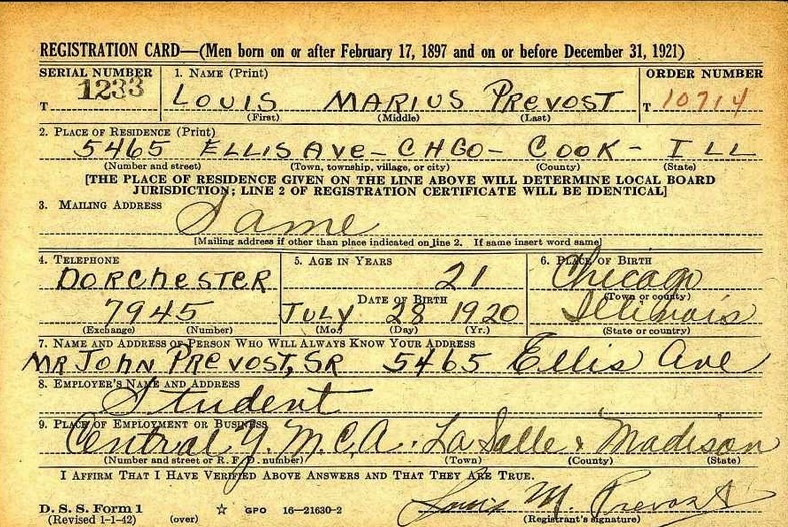 REGISTRATION CARD—(Men born on or after February 17, 1897 and on or before December 31, 1921)
SERIAL NUMBER 1. NAME (Print) ORDER NUMBER
T 1233 LOUIS MARIUS PREVOST T 10714
(First) (Middle) (Last)
2. PLACE OF RESIDENCE (Print)
5465 ELLIS AVE - CHGO - COOK - ILL
(Number and street) (Town, township, village, or city) (County) (State)
[THE PLACE OF RESIDENCE GIVEN ON THE LINE ABOVE WILL DETERMINE LOCAL BOARD
JURISDICTION; LINE 2 OF REGISTRATION CERTIFICATE WILL BE IDENTICAL]
3. MAILING ADDRESS
Same
[Mailing address if other than place indicated on line 2. If same insert word same]
4. TELEPHONE 5. AGE IN YEARS 6. PLACE OF BIRTH
DORCHESTER 21 Chicago
DATE OF BIRTH (Town or county)
7945 JULY 28 1920 Illinois
(Exchange) (Number) (Mo.) (Day) (Yr.) (State or country)
7. NAME AND ADDRESS OF PERSON WHO WILL ALWAYS KNOW YOUR ADDRESS
MR JOHN PREVOST, SR 5465 Ellis Ave
8. EMPLOYER'S NAME AND ADDRESS
Student
9. PLACE OF EMPLOYMENT OR BUSINESS
Central Y.M.C.A. La Salle & Madison
(Number and street or R. F. D. number) (Town) (County) (State)
I AFFIRM THAT I HAVE VERIFIED ABOVE ANSWERS AND THAT THEY ARE TRUE.
Louis M. Prevost
D. S. S. Form 1 ☆ GPO 16—21630-2
(Revised 1-1-42) (over) (Registrant's signature)